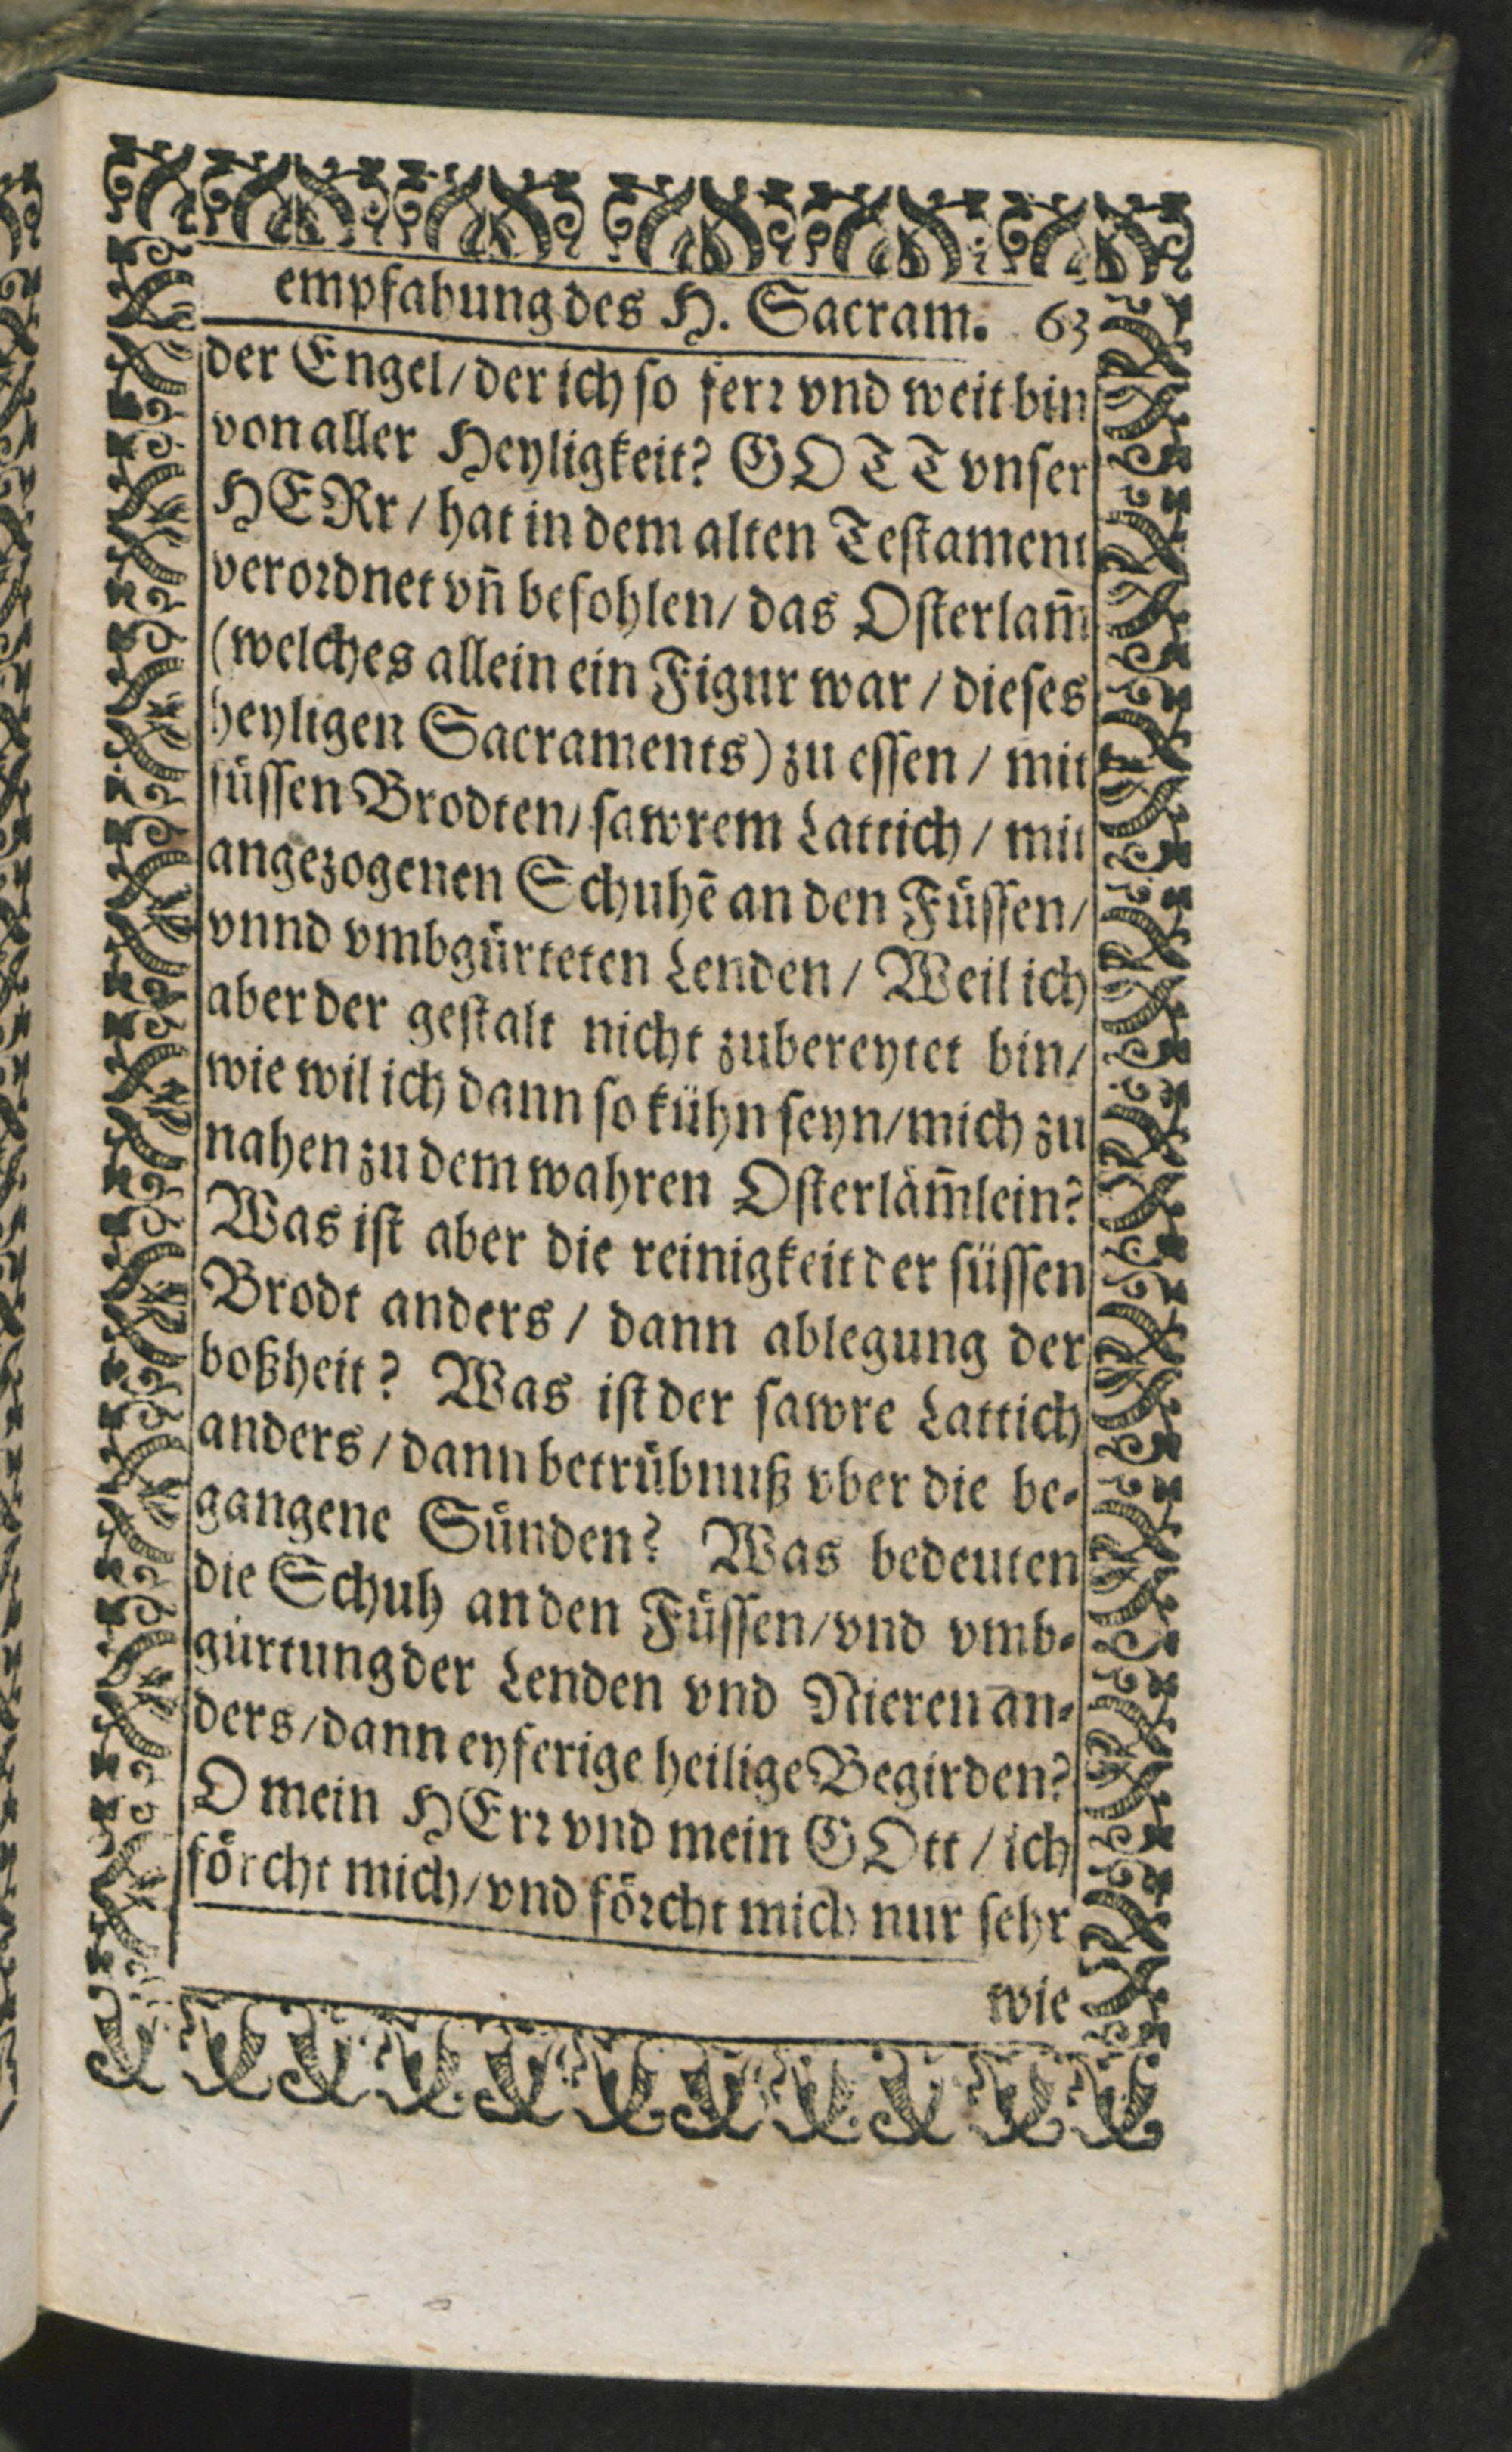 empfahung des H. Sacram. 63
der Engel / der ich so ferr vnd weit bin
von aller Heyligkeit? GOTT vnser
HERr / hat in dem alten Testament
verordnet vñ befohlen / das Osterlam̃
(welches allein ein Figur war / dieses
heyligen Sacraments) zu essen / mit
süssen Brodten / sawrem Lattich / mit
angezogenen Schuhẽ an den Füssen /
vnnd vmbgürteten Lenden / Weil ich
aber der gestalt nicht zubereytet bin /
wie wil ich dann so kühn seyn / mich zu
nahen zu dem wahren Osterläm̃lein?
Was ist aber die reinigkeit der süssen
Brodt anders / dann ablegung der
boßheit? Was ist der sawre Lattich
anders / dann betrübnuß vber die be-
gangene Sünden? Was bedeuten
die Schuh an den Füssen / vnd vmb-
gürtung der Lenden vnd Nieren an-
ders / dann eyferige heilige Begirden?
O mein HErr vnd mein GOtt / ich
förcht mich / vnd förcht mich nur sehr
wie